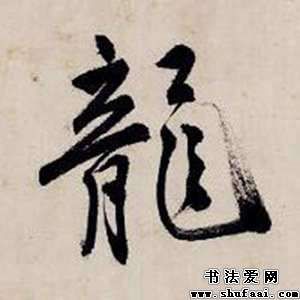 龍
书法爱网
www.shufaai.com